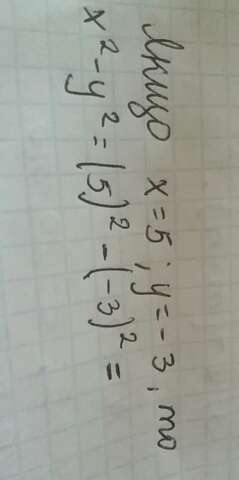 Якщо x = 5; y = - 3, то
x² - y² = (5)² - (-3)² =